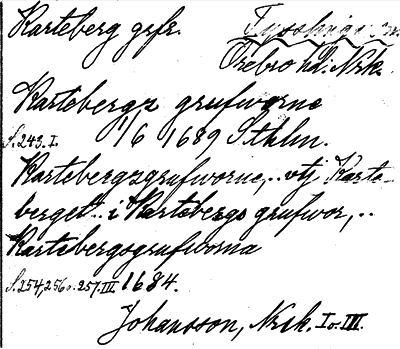 Karteberg gyfs. Tysslinge sn.
Örebro hd. Nrk.
Kartebergz grufworne
S. 243. I. 1/6 1689 Sthlm.
Kartebergzgrufworne,.. vtj Karte-
berget.. i Kartebergs grufwor,..
Kartebergsgrufworna
S. 254, 256 o. 257. III. 1684.
Johansson, Nrk. I o. III.